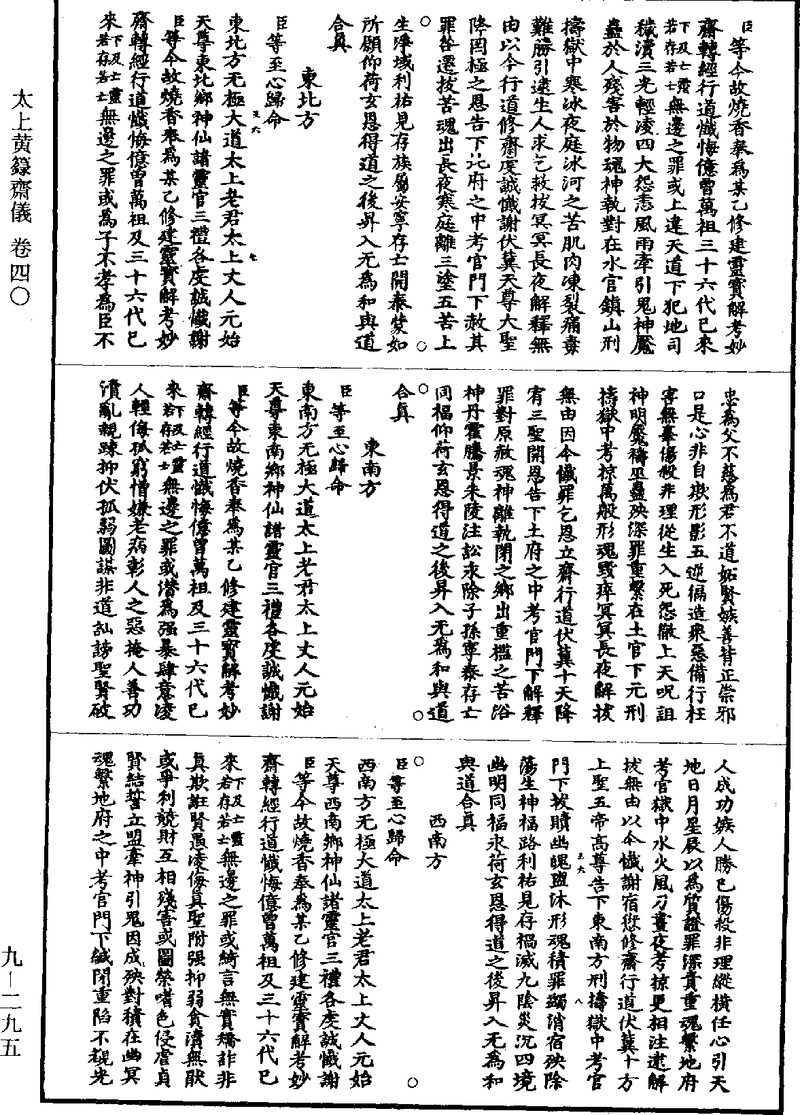 太上黃籙齋儀 卷四〇
臣等今故燒香奉爲某乙修建靈寶解考妙
齋轉經行道懺悔億曾萬祖三十六代已來
下及亡靈若存若亡無邊之罪或上違天道下犯地司
穢瀆三光輕凌四大怨恚風雨牽引鬼神魘
蠱於人殘害於物魂神執對在水官鎖山刑
擣獄中寒冰夜庭冰河之苦肌肉凍裂痛毒
難勝引逮生人求乞救拔冥冥長夜解釋無
由以今行道修齋虔誠懺謝伏冀天尊大聖
降罔極之恩告下北府之中考官門下赦其
罪咎遷拔苦魂出長夜寒庭離三塗五苦上
生淨域利祐見存族屬安寧存亡開泰蒙如
所願仰荷玄恩得道之後昇入无爲和與道
合真
東北方
臣等至心歸命
東北方无極大道太上老君太上丈人元始
天尊東北鄉神仙諸靈官三禮各虔誠懺謝
臣等今故燒香奉爲某乙修建靈寶解考妙
齋轉經行道懺悔億曾萬祖及三十六代已
來下及亡靈若存若亡無邊之罪或爲子不孝爲臣不
忠爲父不慈爲君不道妬賢嫉善背正崇邪
口是心非自欺形影五逆偏造衆惡備行枉
害無辜傷殺非理從生入死怨徹上天呪詛
神明魘禱巫蠱殃深罪重繫在土官下元刑
擣獄中考掠萬般形魂毀瘁冥冥長夜解拔
無由因今懺罪乞恩立齋行道伏冀十天降
宥三聖開恩告下土府之中考官門下解釋
罪對原赦魂神離執閉之鄉出重檻之苦浴
神丹霍騰景朱陵注訟永除子孫寧泰存亡
同福仰荷玄恩得道之後昇入无爲與道
合真
東南方
臣等至心歸命
東南方无極大道太上老君太上丈人元始
天尊東南鄉神仙諸靈官三禮各虔誠懺謝
臣等今故燒香奉爲某乙修建靈寶解考妙
齋轉經行道懺悔億曾萬祖及三十六代已
來下及亡靈若存若亡無邊之罪或潛爲强暴肆意凌
人輕侮孤窮憎嫌老病彰人之惡掩人善功
瀆亂親疎抑伏孤弱圖謀非道訕謗聖賢破
人成功嫉人勝已傷殺非理縱橫任心引天
地日月星辰以爲質證罪深責重魂繫地府
考官獄中水火風刀晝夜考掠更相注逮解
拔無由以今懺謝宿愆修齋行道伏冀十方
上聖五帝高尊告下東南方刑擣獄中考官
門下拔贖幽魄盥沐形魂積罪蠲消宿殃除
蕩生神福路利祐見存禍滅九陰災沉四境
幽明同福永荷玄恩得道之後昇入无爲和
與道合真
西南方
臣等至心歸命
西南方无極大道太上老君太上丈人元始
天尊西南鄉神仙諸靈官三禮各虔誠懺謝
臣等今故燒香奉爲某乙修建靈寶解考妙
齋轉經行道懺悔億曾萬祖及三十六代已
來下及亡靈若存若亡無邊之罪或綺言無實矯詐非
真欺誑賢愚凌侮真聖附强抑弱貪濟無猒
或爭利競財互相殘害或圖榮嗜色侵虐貞
賢結誓立盟牽神引鬼因成殃對積在幽冥
魂繫地府之中考官門下緘閉重陷不覩光
九—二九五